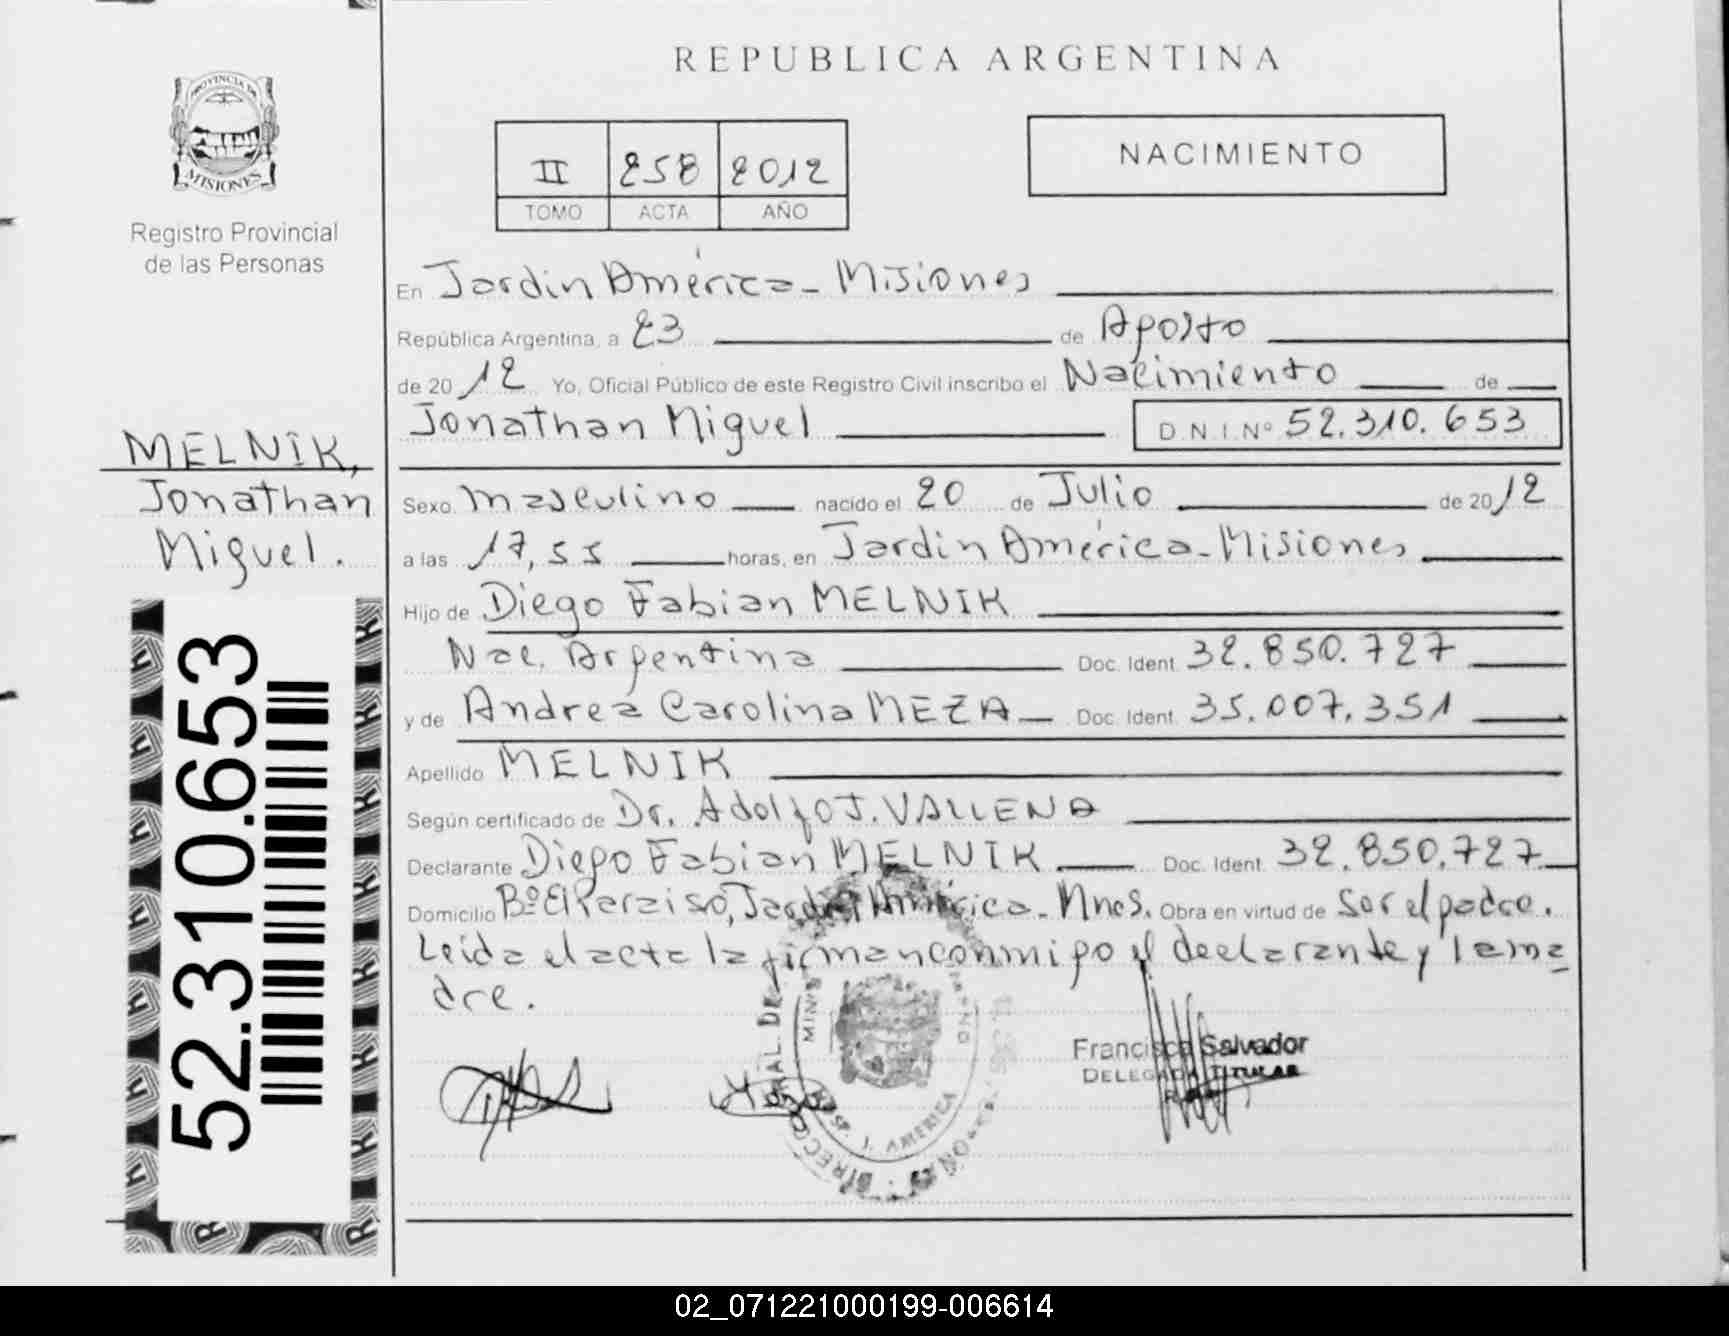 REPUBLICA ARGENTINA
PROVINCIA DE
MISIONES
Registro Provincial
de las Personas
II 258 2012
TOMO ACTA AÑO
NACIMIENTO
En Jardin América - Misiones
República Argentina, a 23 de Agosto
de 2012 Yo, Oficial Público de este Registro Civil inscribo el Nacimiento de
Jonathan Miguel D.N.I.Nº 52.310.653
MELNIK,
Jonathan
Miguel.
Sexo Masculino nacido el 20 de Julio de 2012
a las 17,55 horas, en Jardin América - Misiones
Hijo de Diego Fabian MELNIK
Nac. Argentina Doc. Ident. 32.850.727
y de Andrea Carolina MEZA Doc. Ident. 35.007.351
Apellido MELNIK
Según certificado de Dr. Adolfo J. VALLENA
Declarante Diego Fabian MELNIK Doc. Ident. 32.850.727
Domicilio Bº El Paraiso, Jardin América - Mnes. Obra en virtud de Ser el padre.
Leida el acta la firman conmigo el declarante y la ma
dre.
52.310.653
Francisca Salvador
DELEGADA TITULAR
J. AMERICA
02_071221000199-006614